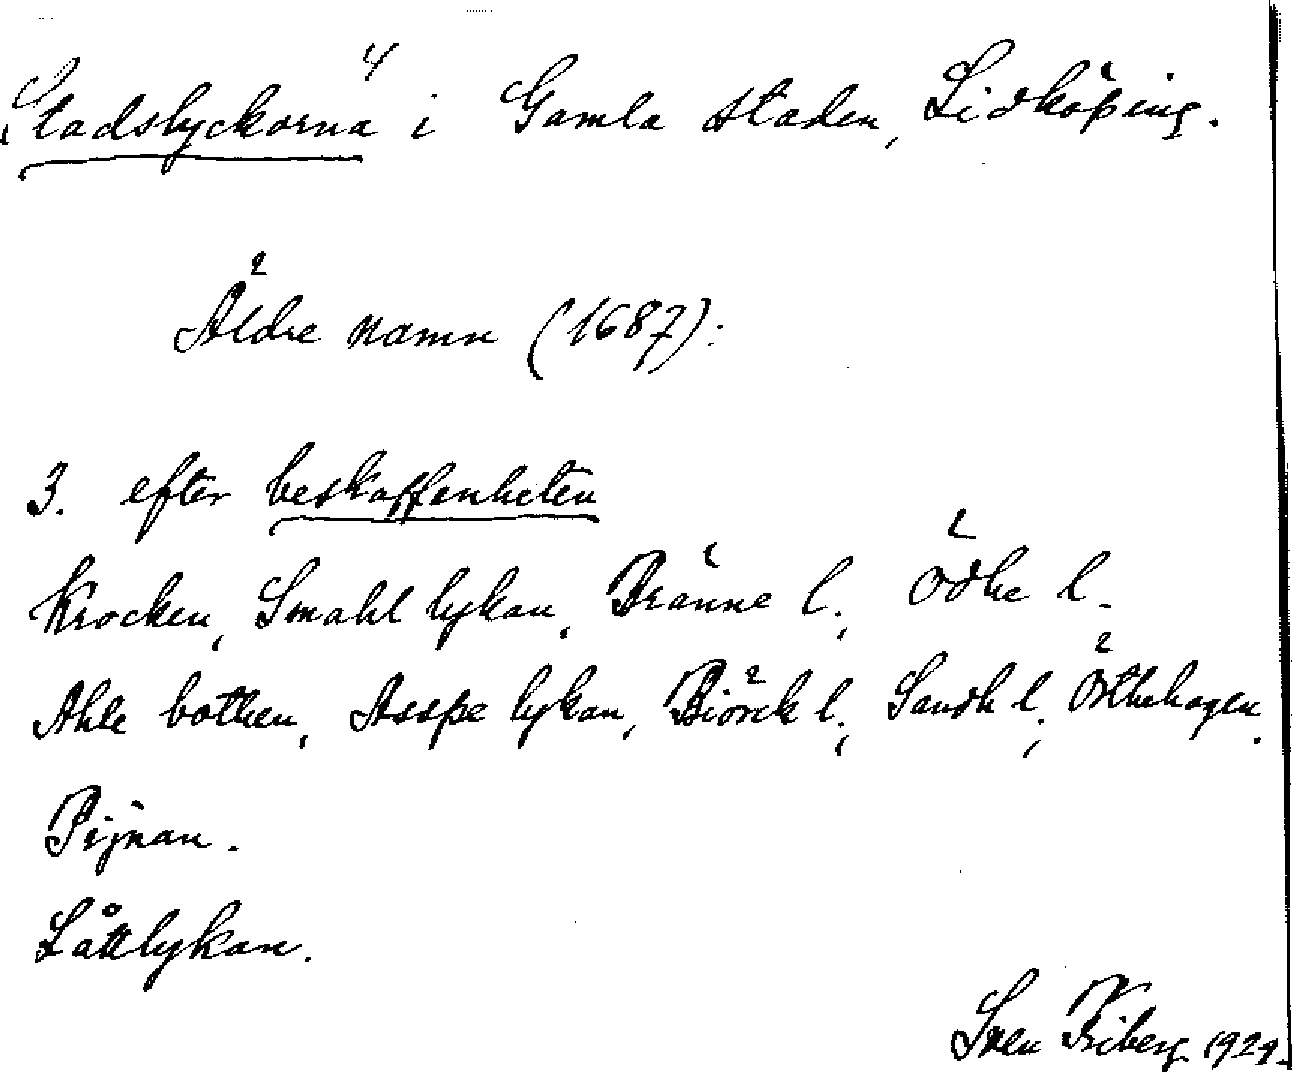 "Stadslyckorna" i Gamla staden, Lidköping.
Äldre namn (1687):
3. efter beskaffenheten
Krocken, Smahl lykan, Bränne l., Ödhe l.
Ahle botten, Asspe lykan, Biörck l., Sandh l., Örthehagen.
Pijnan.
Låttlykan.
Sven Friberg 1929.